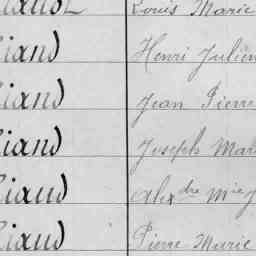 Louis Marie
iand Henri Julien
iand Jean Pierre
iand Joseph Mar
iaud Alexdre Mie J
iaud Pierre Marie